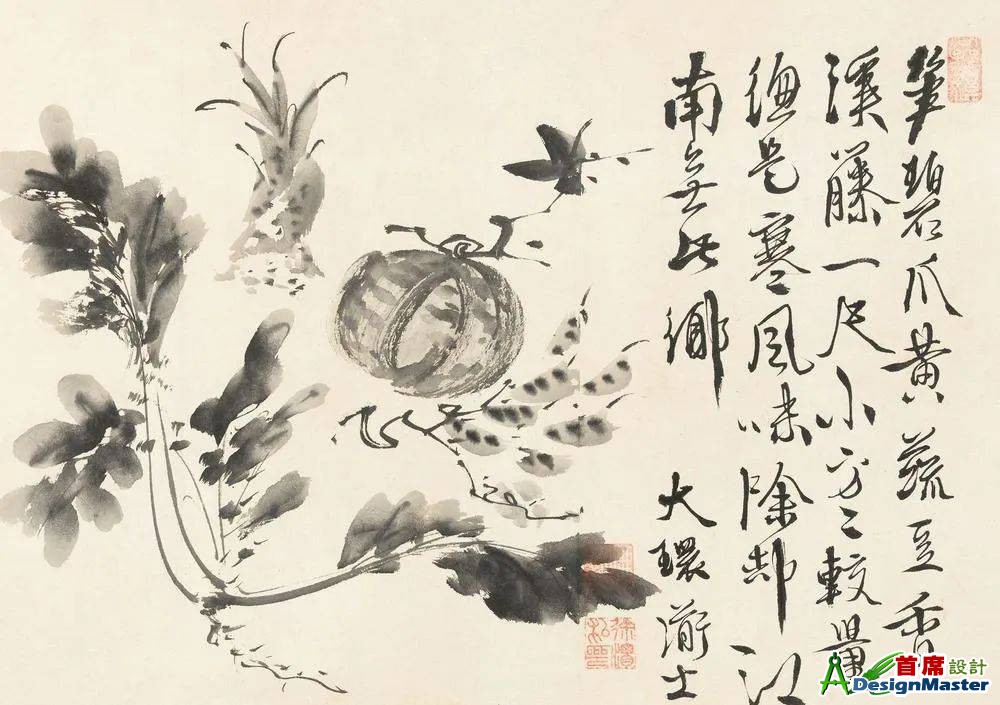 笋碧瓜黃蔬豆香
溪藤一尺小方〻較量
總是寒風味除却江
南無此鄉
大環士
首席設計
DesignMaster